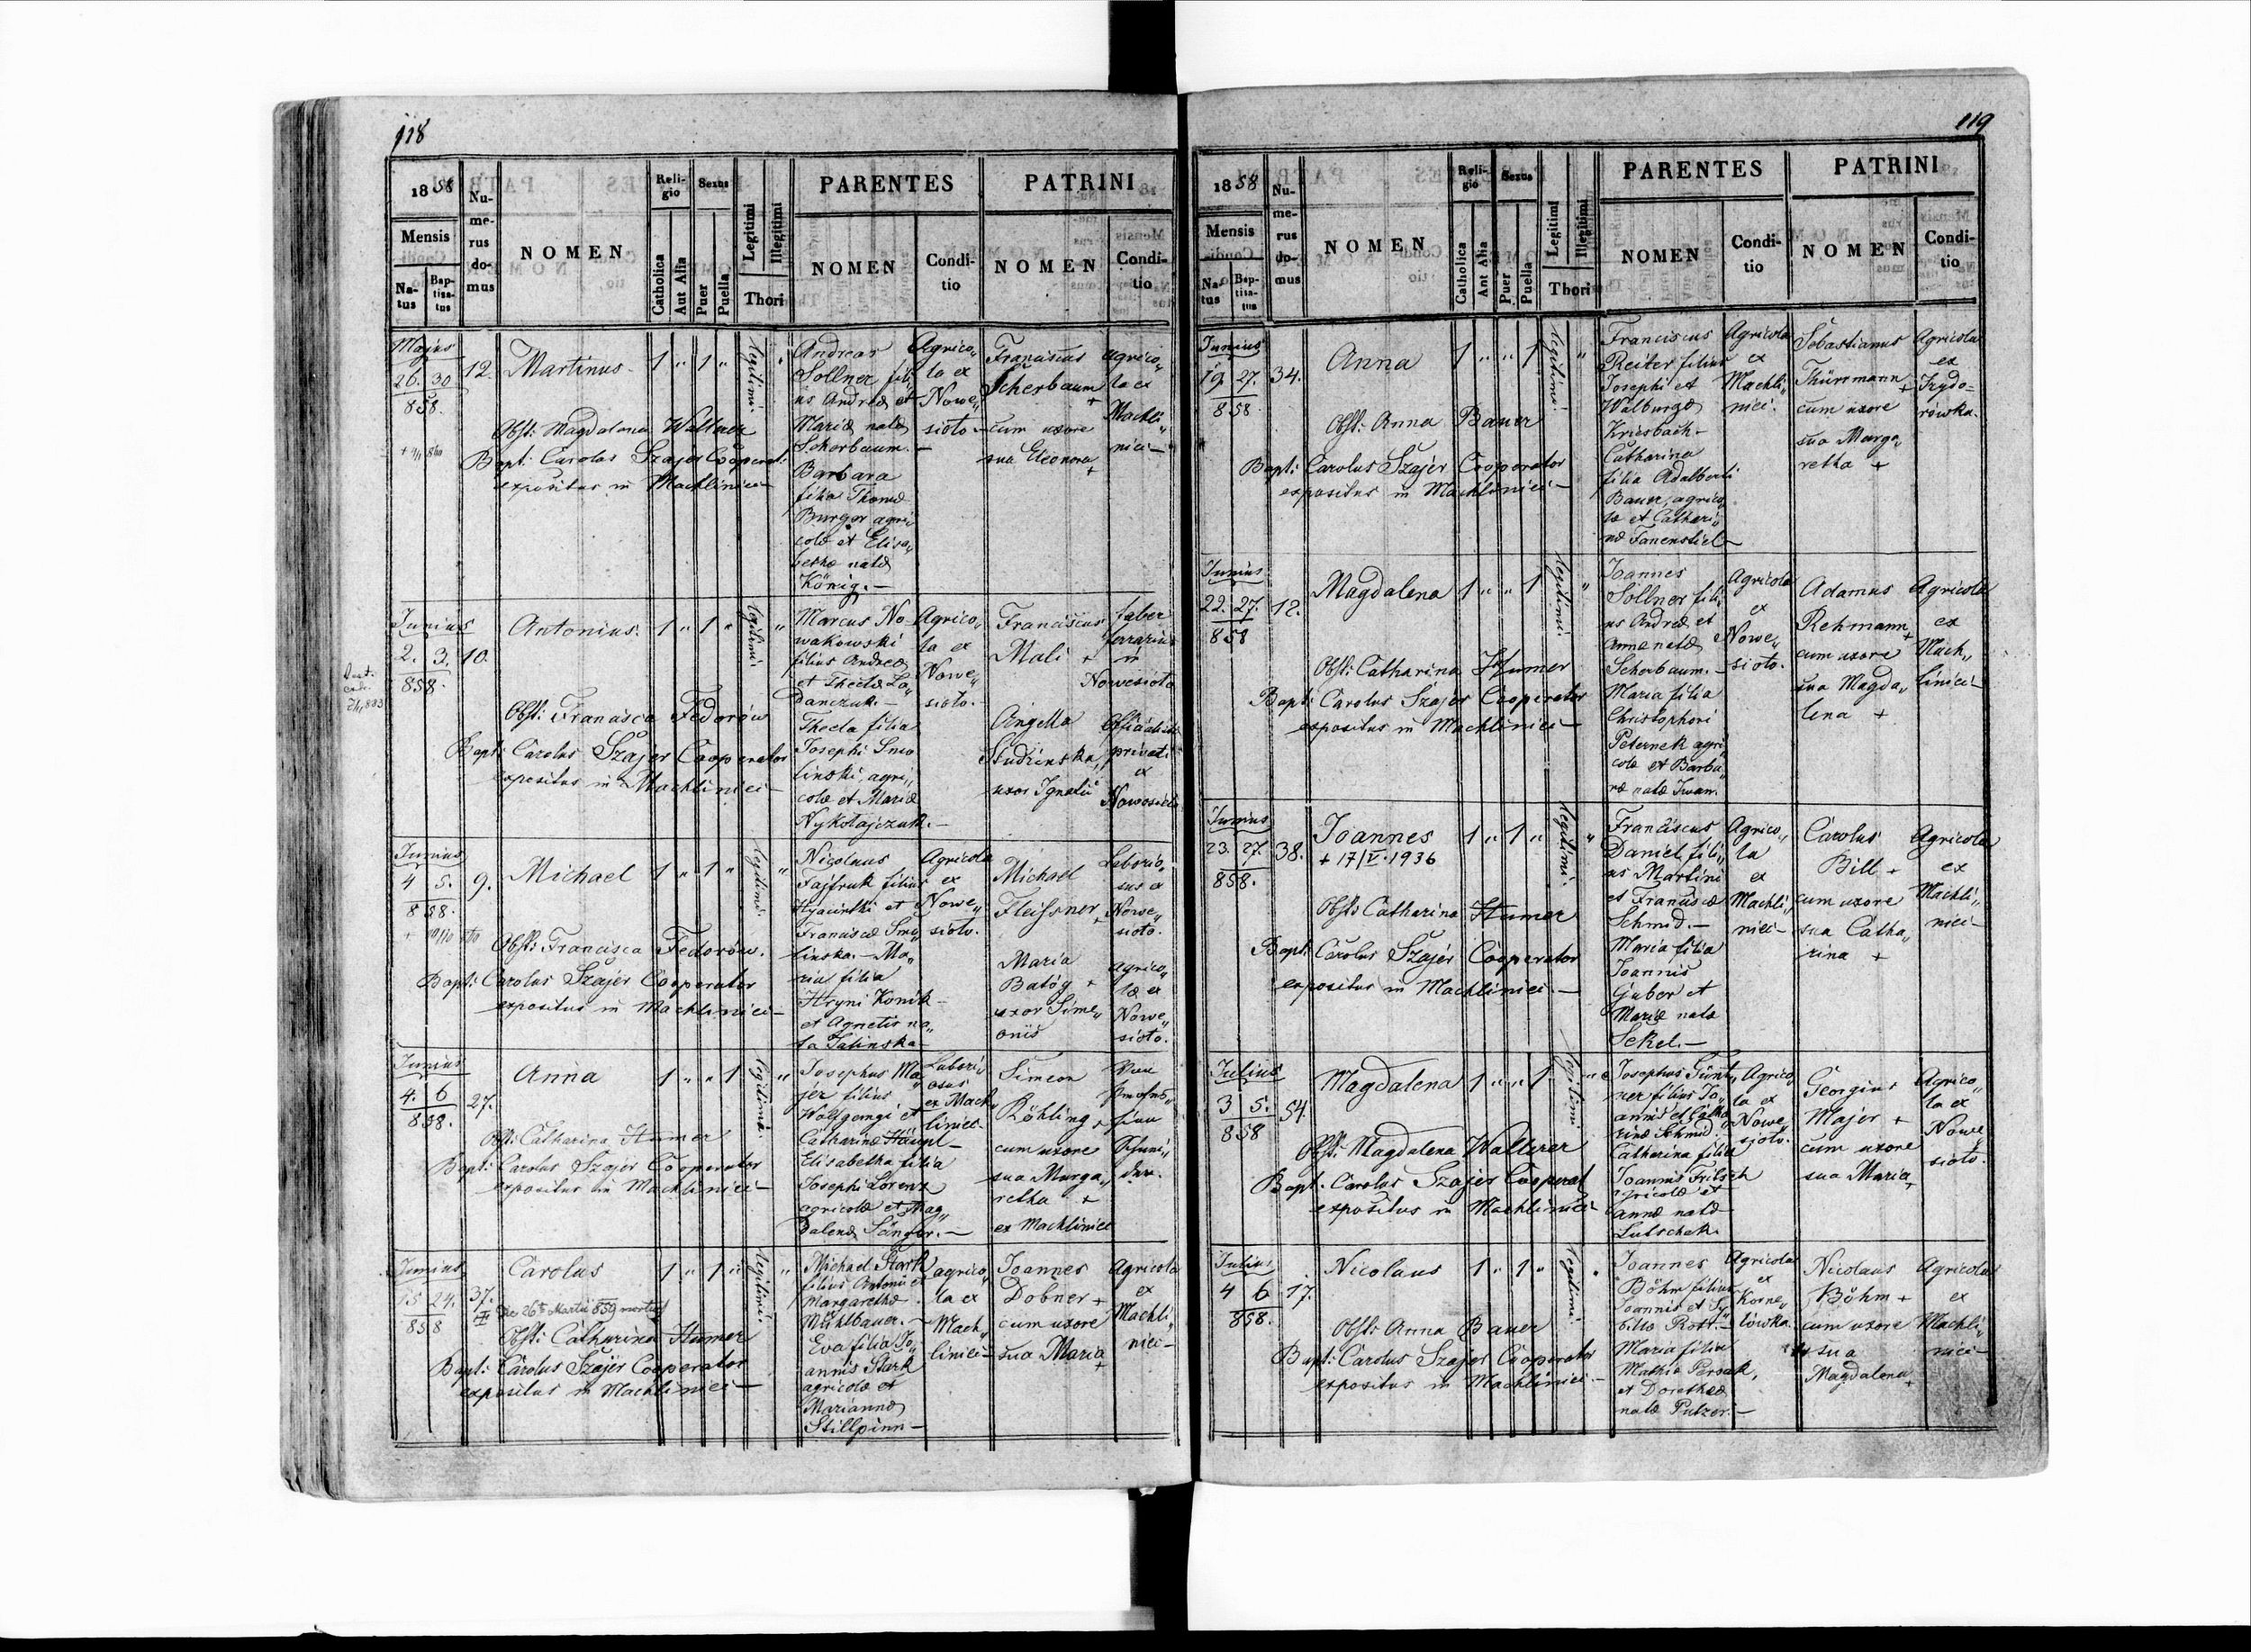 118
1858
Mensis
Natus
Baptisatus
Numerus domus
NOMEN
Religio
Catholica
Aut Alia
Sexus
Puer
Puella
Legitimi
Illegitimi
Thori
PARENTES
NOMEN
Conditio
PATRINI
NOMEN
Conditio
Majus
26. 30
858.
12.
Martinus
1 " 1 "
legitimi
Obst: Magdalena Walterer
Bapt: Carolus Szajer Cooperat:
expositus in Machlinici
Andreas
Söllner fili„
us Andreæ et
Mariæ natæ
Scherbaum.
Barbara
filia Thomæ
Burger agri„
colæ et Elisa„
bethæ natæ
König.
Agrico„
la ex
Nowe„
sioło
Franciscus
Scherbaum +
cum uxore
sua Eleonora +
agrico„
la ex
Machli„
nici
Junius
2. 3.
858.
10.
Antonius.
1 " 1 "
legitimi
Obst: Francisca Fedorów
Bapt: Carolus Szajer Cooperator
expositus in Machlinici
Marcus No-
wakowski
filius Andreæ
et Theclæ La„
danczuk.
Thecla filia
Josephi Smo
linski, agri„
colæ et Mariæ
Nykołajczuk.
Agrico„
la ex
Nowe„
sioło.
Franciscus
Mali +
Angella
Studzinska,
uxor Ignatii
faber
ferrarius
in
Nowesioło
privati
ex
Junius
4 5.
858.
9.
Michael
1 " 1 "
legitimi
Obst: Francisca Fedorów.
Bapt: Carolus Szajer Cooperator
expositus in Machlinici
Nicolaus
Fajfruk filius
Hyacinthi et
Franciscæ Smo„
linska. Ma„
ria filia
Hryni Konik
et Agnetis na„
ta Jalinska
Agricola
ex
Nowe„
sioło.
Michael
Fleissner +
Maria
Batóg +
uxor Sime„
onis
Laborio„
sus ex
Nowe„
sioło.
agrico„
læ ex
Nowe„
sioło.
Junius
4. 6
858.
27.
Anna
1 " " 1
legitimi
Obst: Catharina Humer
Bapt: Carolus Szajer Cooperator
expositus in Machlinici
Josephus Ma„
jer filius
Wolfgangi et
Catharinæ Häupl
Elisabetha filia
Josephi Lorenz
agricolæ et Mag„
dalenæ Sänger.
Labori„
osus
ex Mach„
linici
Simeon
Röhling +
cum uxore
sua Marga„
retha +
ex Machlinici
Junius
15 24.
858
37.
Carolus
1 " 1 "
legitimi
die 26ta Martii 859 mortuus
Obst: Catharina Humer
Bapt: Carolus Szajer Cooperator
expositus in Machlinici
Michael Stark
filius Antonii et
Margarethæ
Mühlbauer.
Eva filia Jo„
annis Stark
agricolæ et
Mariannæ
Stillpinn
agrico„
la ex
Mach„
linici
Joannes
Dobner +
cum uxore
sua Maria +
Agricola
ex
Machli„
nici
119
1858
Mensis
Natus
Baptisatus
Numerus domus
NOMEN
Religio
Catholica
Aut Alia
Sexus
Puer
Puella
Legitimi
Illegitimi
Thori
PARENTES
NOMEN
Conditio
PATRINI
NOMEN
Conditio
Junius
19. 27.
858
34.
Anna
1 " " 1
legitimi
Obst: Anna Bauer
Bapt: Carolus Szajer Cooperator
expositus in Machlinici
Franciscus
Reiter filius
Josephi et
Walburgæ
Kriesbach
Catharina
filia Adalberti
Bauer, agrico„
læ et Cathari„
næ Fanenstiel
Agricola
ex
Machli„
nici.
Sebastianus
Thürrmann +
cum uxore
sua Marga„
retha +
Agricola
ex
Izydo=
rówka.
Junius
22. 27.
858
12.
Magdalena
1 " " 1
legitimi
Obst: Catharina Humer
Bapt: Carolus Szajer Cooperator
expositus in Machlinici
Joannes
Söllner fili„
us Andreæ et
Annæ natæ
Scherbaum.
Maria filia
Christophori
Peternek agri„
colæ et Barba„
ræ natæ Iwan.
Agricola
ex
Nowe„
sioło.
Adamus
Rehmann +
cum uxore
sua Magda„
lena +
Agricola
ex
Mach„
linici
Junius
23. 27.
858.
38.
Joannes
+ 17/V. 1936
1 " 1 "
legitimi
Obst: Catharina Humer
Bapt: Carolus Szajer Cooperator
expositus in Machlinici
Franciscus
Daniel fili„
us Martini
et Franciscæ
Schmid.
Maria filia
Joannis
Guber et
Mariæ natæ
Sekel.
Agrico„
la
ex
Machli„
nici
Carolus
Bill +
cum uxore
sua Catha„
rina +
Agricola
ex
Machli„
nici
Julius
3 5.
858
54
Magdalena
1 " " 1
legitimi
Obst: Magdalena Walterer
Bapt: Carolus Szajer Cooperat
expositus in Machlinici
Josephus Günt„
ner filius Jo„
annis et Catha„
rinæ Schmid.
Catharina filia
Joannis Fritsch
agricolæ et
Annæ natæ
Lutschek.
Agrico„
la ex
Nowe„
sioło.
Georgius
Majer +
cum uxore
sua Maria +
Agrico„
la ex
Nowe„
sioło.
Julius
4 6
858.
17.
Nicolaus
1 " 1 "
legitimi
Obst: Anna Bauer
Bapt: Carolus Szajer Cooperator
expositus in Machlinici
Joannes
Böhm filius
Joannis et Sy„
billæ Rott.
Maria filia
Mathiæ Persak,
et Dorotheæ
natæ Pulzer.
Agricola
ex
Korne„
lówka.
Nicolaus
Böhm +
cum uxore
sua
Magdalena +
Agricola
ex
Machli„
nici